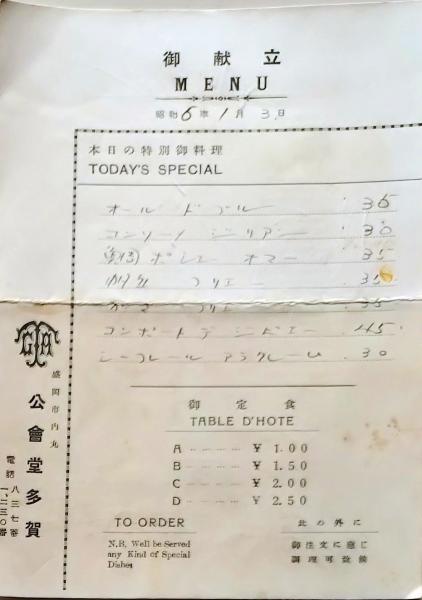 御献立
MENU
昭和6年1月3日
本日の特別御料理
TODAY'S SPECIAL
オールドブル .35
コンソーメ ジリアン .30
ボレー オマー .35
フリエー .35
フリエ .35
コンポートデ .45
シーフレール アラクレーム .30
御定食
TABLE D'HOTE
A ........... ¥ 1.00
B ........... ¥ 1.50
C ........... ¥ 2.00
D ........... ¥ 2.50
TO ORDER
N.B. Well be Served
any Kind of Special
Dishes
此の外に
御注文に應じ
調理可致候
盛岡市内丸
公會堂多賀
電話 八三七番
一、二三〇番